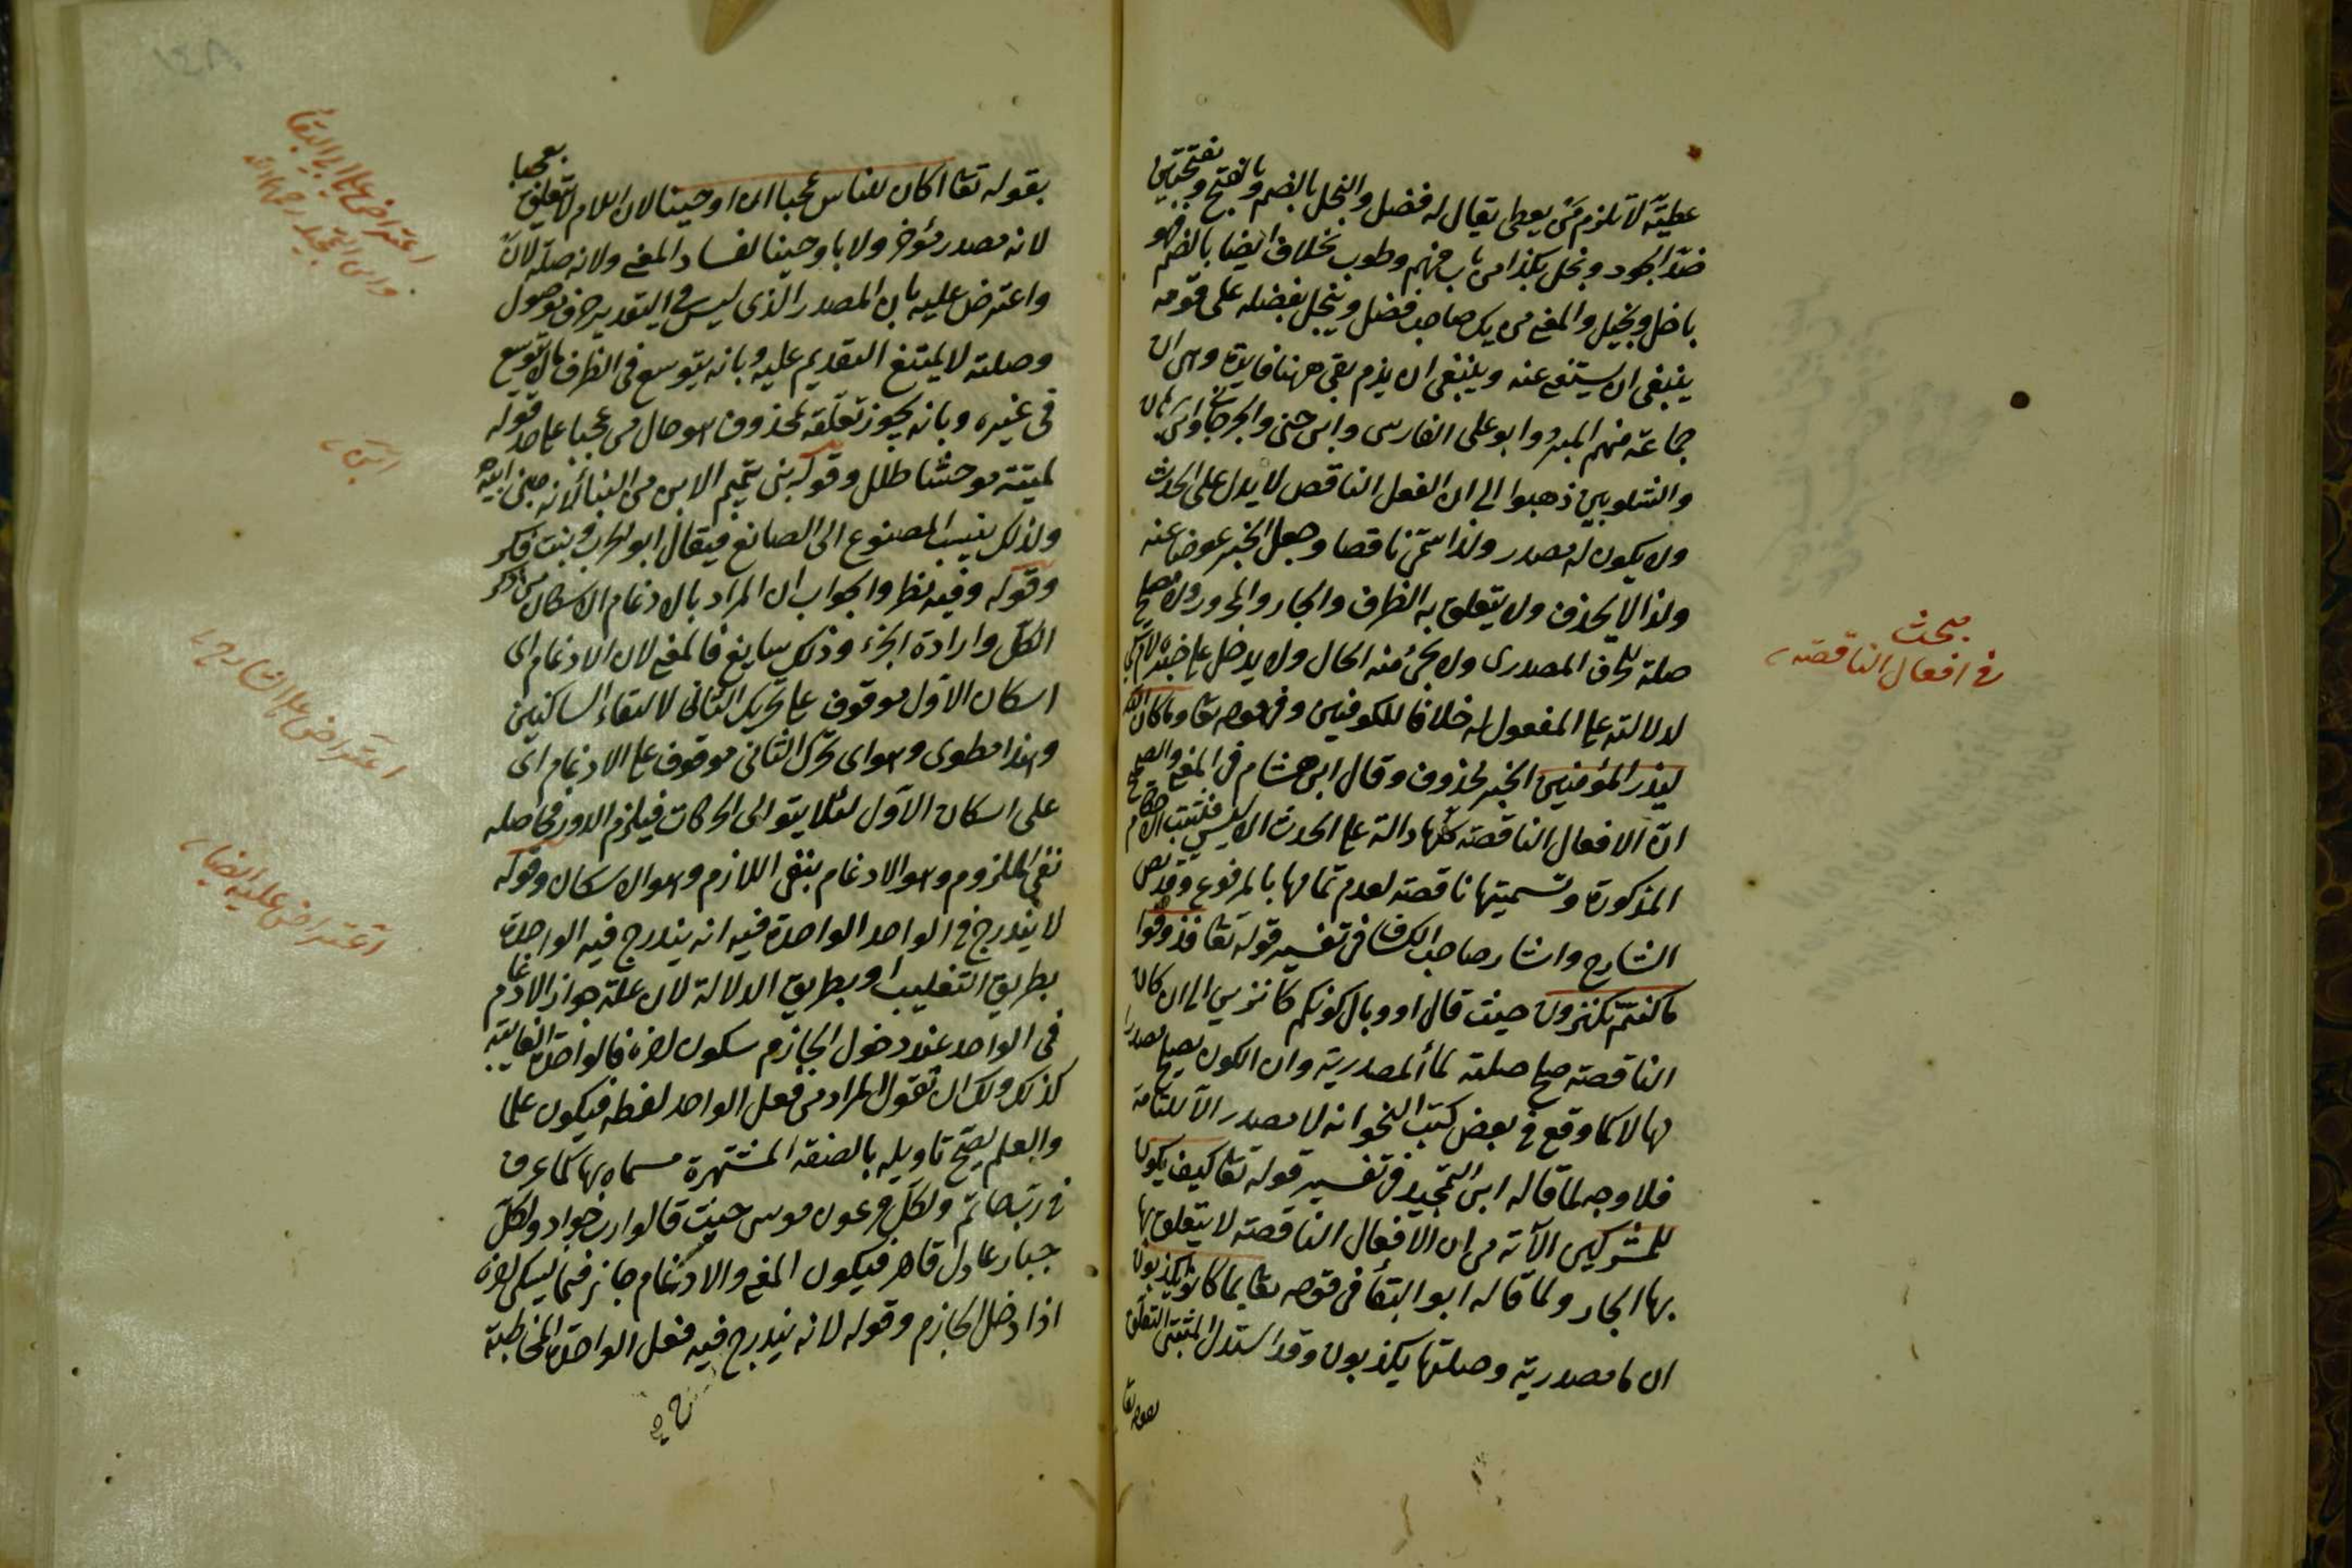 عطيّة لا تلزم مَن يعطى يقال له فضل والبخل بالضم وبالفتح وبفتحتين
ضدّ الجود وبخل بكذا من باب فهم وطرب بخلا ايضا بالضم فهو
باخل وبخيل والمعنى من يك صاحب فضل ويبخل بفضله على قومه
ينبغى ان يستغنى عنه وينبغى ان يذم بقى ههنا فايدة وهى ان
جماعة منهم المبرد وابو على الفارسى وابن جنى والجرجانى وابن برهان
والشلوبين ذهبوا الى ان الفعل الناقص لا يدل على الحدث
ولا يكون له مصدر ولذا سمّى ناقصا وجعل الخبر عوضا عنه
ولذا لا يحذف ولا يتعلق به الظرف والجار والمجرور ولا يصلح
صلة للحرف المصدرى ولا يجئ منه الحال ولا يدخل على خبره لام كى
لدلالته على المفعول له خلافا للكوفيين وفى قوله تعا وما كان الله
ليذر المؤمنين الخبر محذوف وقال ابن هشام فى المغنى والصحيح
انّ الافعال الناقصة كلها دالة على الحدث الا ليس فتثبت الاحكام
المذكورة وتسميتها ناقصة لعدم تمامها بالمرفوع وقد نص
الشارح واشار صاحب الكشاف فى تفسير قوله تعا فذوقوا
ما كنتم تكنزون حيث قال او وبال كونكم كانزين الى ان كان
الناقصة صح صلة لما المصدرية وان الكون يصح مصدرا
لها لا كما وقع فى بعض كتب النحو انه لا مصدر الا للتامة
فلا وجه لما قاله ابن التمجيد فى تفسير قوله تعا كيف يكون
للمشركين الآية من ان الافعال الناقصة لا يتعلق بها
بها الجار ولما قاله ابو البقا فى قوله تعا بما كانوا يكذبون
ان ما مصدرية وصلتها يكذبون وقد استدل المثبتى التعلق
بقوله تعا
مبحث
فى افعال الناقصة
بقوله تعا اكان للناس عجبا ان اوحينا لان اللام لا يتعلق بعجبا
لانه مصدر مؤخر ولا باوحينا لفساد المعنى ولانه صلة لان
واعترض عليه بان المصدر الذى ليس فى التقدير حرف موصول
وصلته لا يمتنع التقديم عليه وبانه يتوسع فى الظرف ما لا يتوسع
فى غيره وبانه يجوز تعلقه بمحذوف هو حال من عجبا على حد قوله
لمية موحشا طلل وقوله بنى تميم الابن من البنا لانه مبنى ابيه
ولذلك ينسب المصنوع الى الصانع فيقال ابو الحرب وبنت فكر
وقوله وفيه نظر والجواب ان المراد بالادغام الاسكان من ذكر
الكل وارادة الجزء وذلك سايغ فالمعنى لان الادغام اى
اسكان الاول موقوف على تحريك الثانى لالتقاء الساكنين
وهذا مطوى وهو اى تحرك الثانى موقوف على الادغام اى
على اسكان الاول لئلا يتوالى الحركات فيلزم الدور فحاصله
نفى الملزوم وهو الادغام بنفى اللازم وهو الاسكان وقوله
لا يندرج فى الواحد الواحدة فيه انه يندرج فيه الواحدة
بطريق التغليب او بطريق الدلالة لان علة جواز الادغام
فى الواحد عند دخول الجازم سكون اخره فالواحدة الغايبة
كذلك ولك ان تقول المراد من فعل الواحد لفظه فيكون علما
والعلم يصح تاويله بالصفة المشتهرة مسماه بها كما عرف
فى رب حاتم ولكل فرعون موسى حيث قالوا رب جواد ولكل
جبار عادل قاهر فيكون المعنى والادغام جائز فيما يسكن اخره
اذا دخل الجازم وقوله لانه يندرج فيه فعل الواحدة المخاطبة
اعتراض على ابى البقا
وابن التمجيد رحمهما الله
ابن
اعتراض على الشارح
اعتراض عليه ايضا